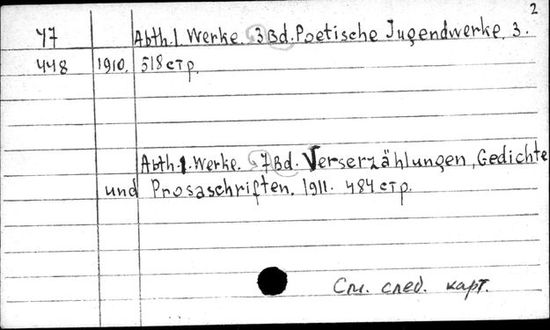 2
47 Abth.1. Werke. 3Bd. Poetische Jugendwerke, 3.
448 1910. 518 стр.
Abth.1. Werke. 7Bd. Verserzählungen, Gedichte
und Prosaschriften. 1911. 484 стр.
См. след. карт.